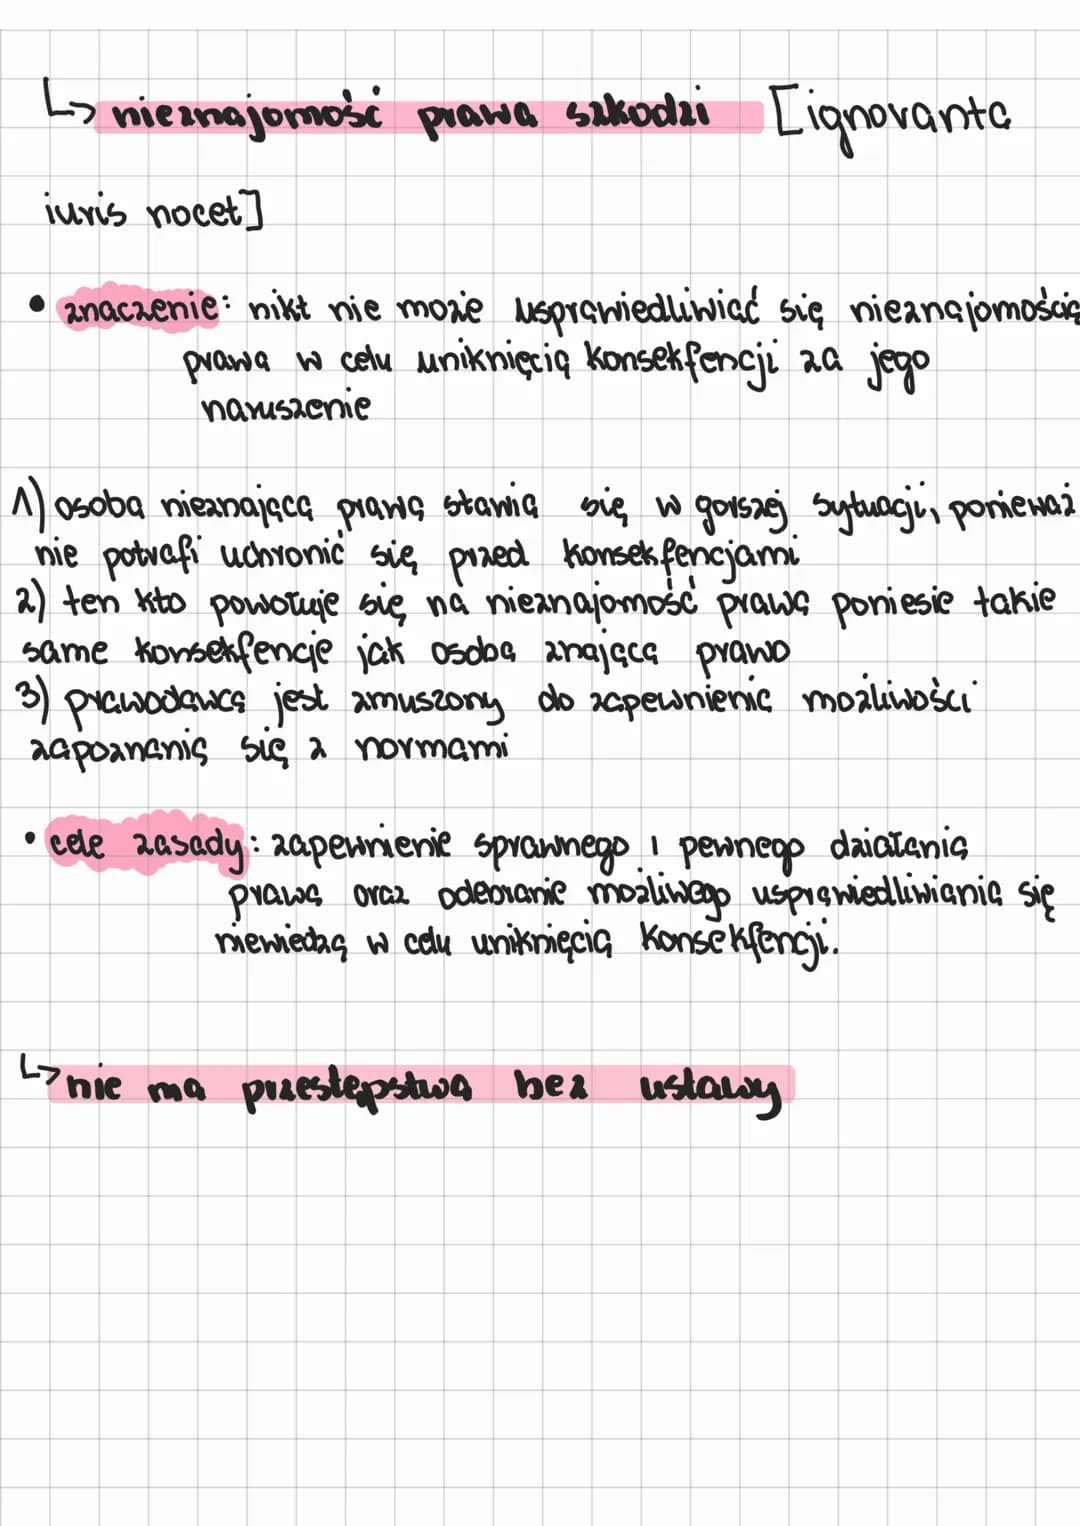 ↳ nieznajomość prawa szkodzi [ignoranta
iuris nocet]
• znaczenie: nikt nie może usprawiedliwiać się nieznajomością
prawa w celu uniknięcia konsekfencji za jego
naruszenie
1) osoba nieznająca prawa stawia się w gorszej sytuacji, ponieważ
nie potrafi uchronić się przed konsekfencjami
2) ten kto powołuje się na nieznajomość prawa poniesie takie
same konsekfencje jak osoba znająca prawo
3) prawodawca jest zmuszony do zapewnienia możliwości
zapoznania się z normami
• cele zasady: zapewnienie sprawnego i pewnego działania
prawa oraz odebranie możliwego usprawiedliwiania się
niewiedzą w celu uniknięcia konsekfencji.
↳ nie ma przestępstwa bez ustawy